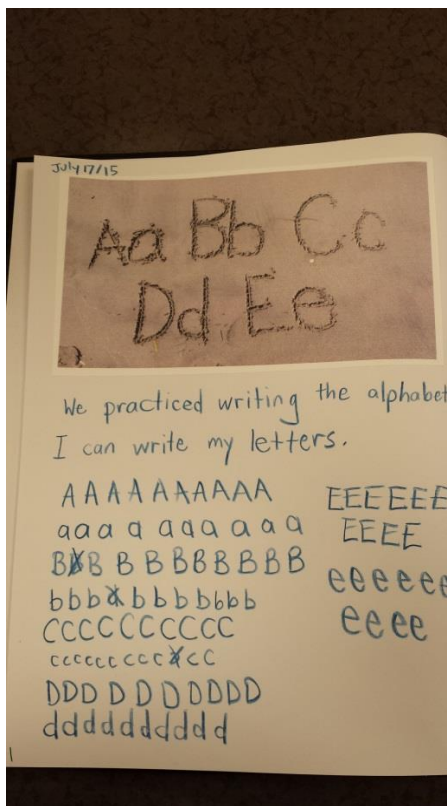 July 17/15
Aa Bb Cc
Dd Ee
We practiced writing the alphabet
I can write my letters.
A A A A A A A A A A
a a a a a a a a a a
B B B B B B B B B B
b b b b b b b b b b
C C C C C C C C C C C
c c c c c c c c c c c
D D D D D D D D D D
d d d d d d d d d d
E E E E E E
E E E E
e e e e e e
e e e e
1